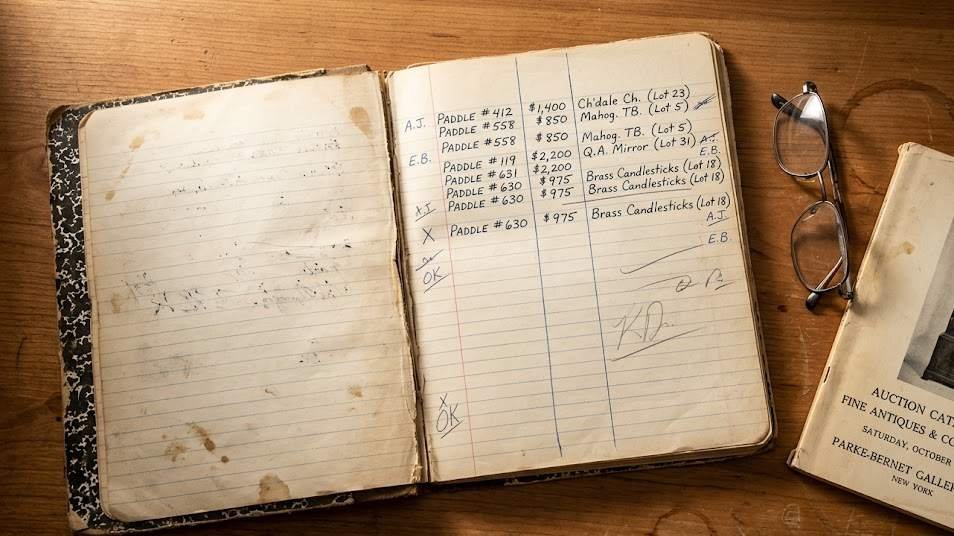 A.J. PADDLE #412 $1,400 Ch'dale Ch. (Lot 23)
PADDLE #558 $850 Mahog. TB. (Lot 5)
PADDLE #558 $850 Mahog. TB. (Lot 5)
E.B. PADDLE #119 $2,200 Q.A. Mirror (Lot 31) A.J.
PADDLE #631 $2,200 E.B.
PADDLE #630 $975 Brass Candlesticks (Lot 18)
PADDLE #630 $975 Brass Candlesticks (Lot 18)
X PADDLE #630 $975 Brass Candlesticks (Lot 18)
A.J.
E.B.
OK
X
OK
AUCTION
FINE ANTIQUES &
SATURDAY, OCTOBER
PARKE-BERNET
NEW YORK